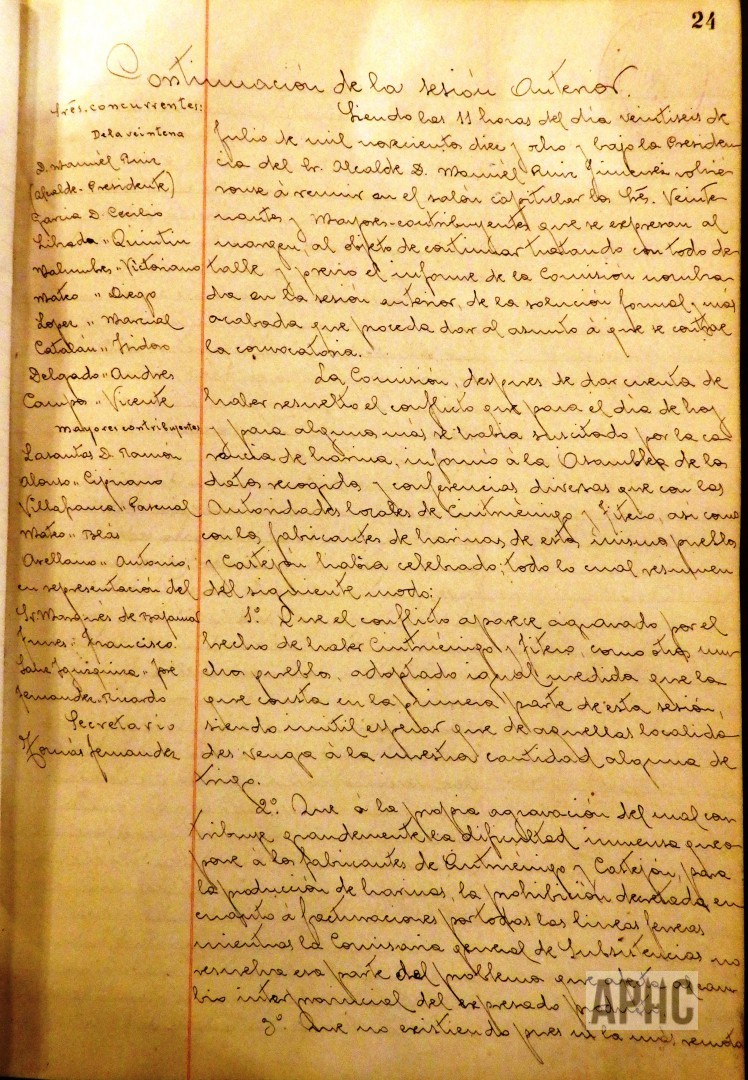 24
Continuación de la sesión anterior.
Srés. concurrentes:
De la veintena
D. Manuel Ruiz
(Alcalde-Presidente)
Garcia D. Cecilio
Librada " Quintin
Malumbres " Victoriano
Mateo " Diego
Lopez " Marcial
Catalán " Isidoro
Delgado " Andres
Campos " Vicente
Mayores contribuyentes
Lasantas D. Ramón
Alonso " Cipriano
Villafranca " Pascual
Mateo " Blás
Arellano " Antonio,
en representación del
Sr. Marqués de Bajamar
Francisco.
José
Fernandez " Ricardo
Secretario
Tomás Fernandez
Siendo las 11 horas del día veintiseis de
Julio de mil novecientos diez y ocho y bajo la Presiden
cia del Sr. Alcalde D. Manuel Ruiz Jimenez volvié
ronse à reunir en el salón capitular los Srés. Veinte
nantes y Mayores-contribuyentes que se expresan al
margen, al objeto de continuar tratando con todo de
talle y previo el informe de la Comisión nombra
da en la sesión anterior, de la solución formal y más
acabada que proceda dar al asunto à que se contrae
la convocatoria.
La Comisión, despues de dar cuenta de
haber resuelto el conflicto que para el día de hoy
y para alguno más se había suscitado por la ca
rencia de harina, informó à la Asamblea de los
datos recogidos y conferencias diversas que con las
Autoridades locales de Cintruénigo y Fitero, asi como
con los fabricantes de harinas de estos mismos pueblos
y Castejón había celebrado; todo lo cual resumen
del siguiente modo:
1º. Que el conflicto aparece agravado por el
hecho de haber Cintruénigo y Fitero, como otros mu
chos pueblos, adoptado igual medida que la
que consta en la primera parte de esta sesión,
siendo inutil esperar que de aquellas localida
des venga à la nuestra cantidad alguna de
trigo.
2º. Que à la propia agravación del mal con
tribuye grandemente la dificultad inmensa que o
pone à los fabricantes de Cintruénigo y Castejón, para
la producción de harinas, la prohibición decretada en
cuanto à facturaciones por todas las lineas ferreas
mientras la Comisaria general de Subsistencias no
resuelva esa parte del problema que afecta al cam
bio interprovincial del expresado producto.
3º. Que no existiendo pues ni la más remota
APHC